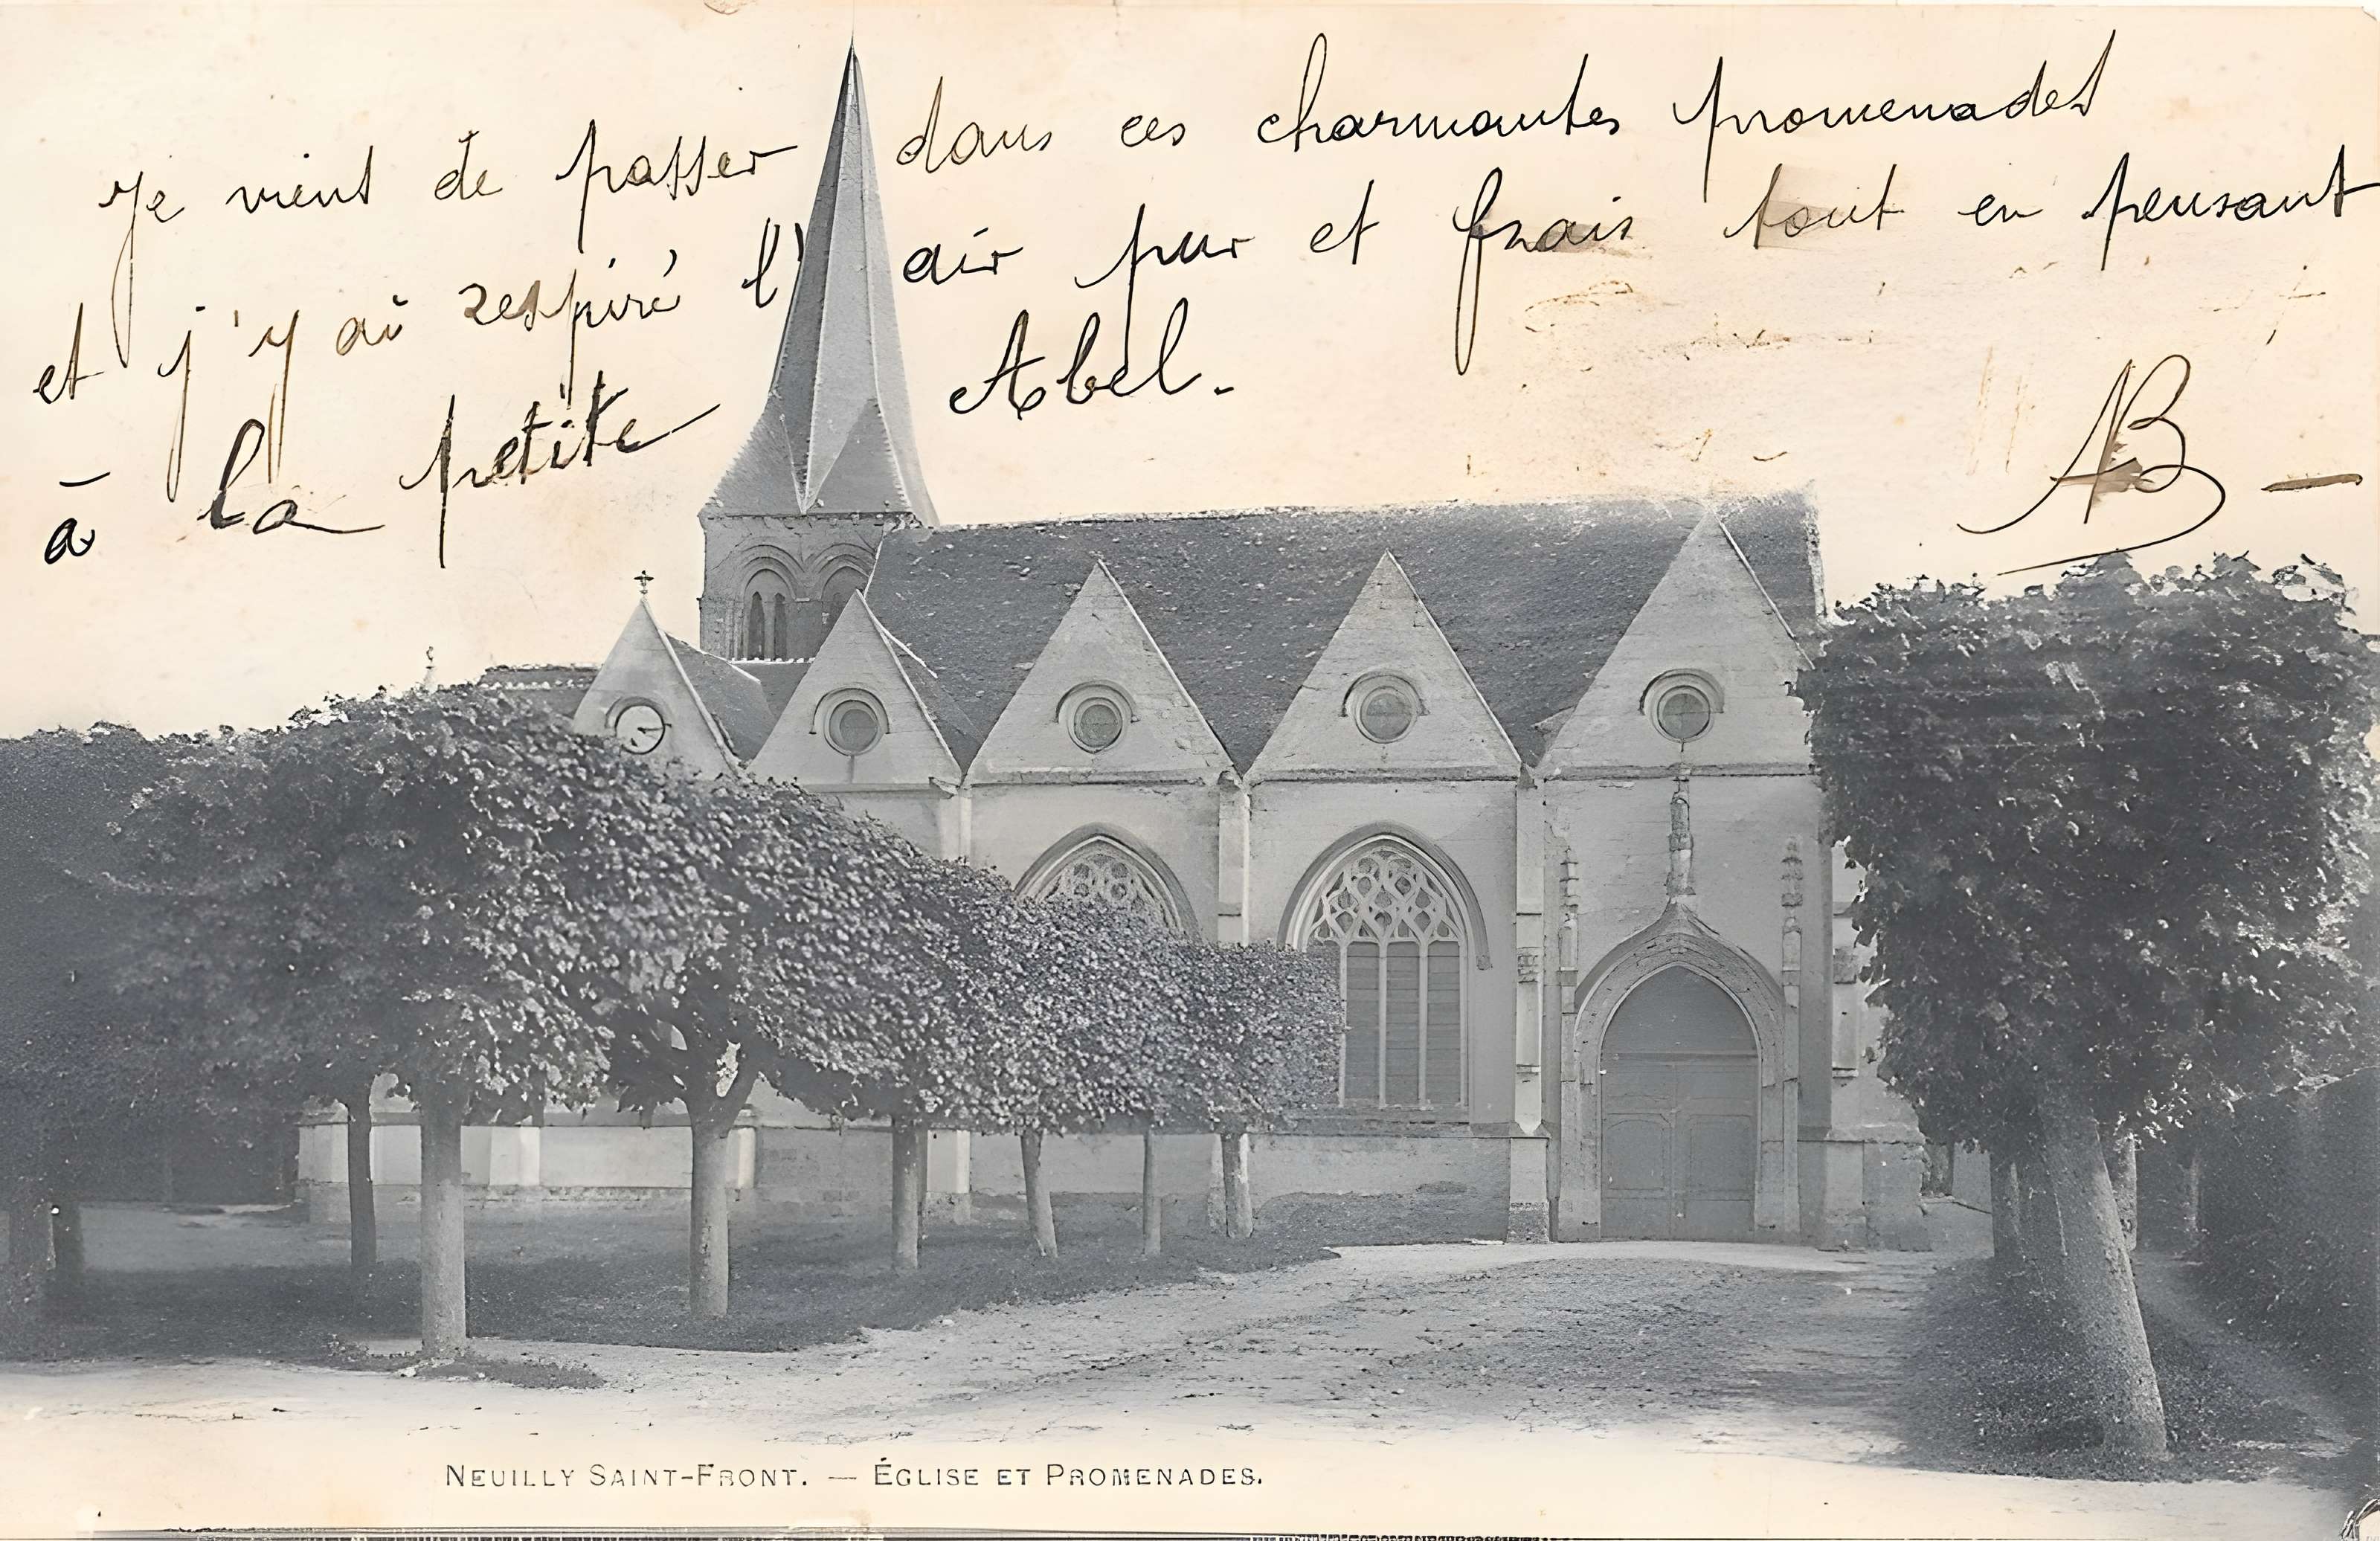 Je vient de passer dans ces charmantes promenades
et j'y ai respiré l'air pur et frais tout en pensant
à la petite Abel.
AB
NEUILLY SAINT-FRONT. — ÉGLISE ET PROMENADES.